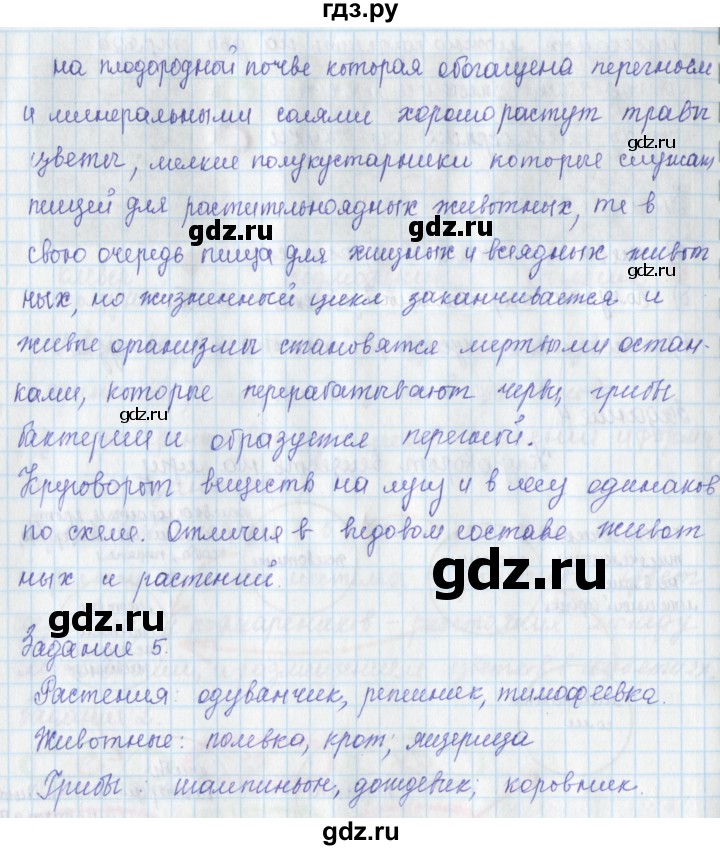 гдз.ру
на плодородной почве которая обогащена перегноем
и минеральными солями хорошо растут травы
gdz.ru
цветы, мелкие полукустарники которые служат
gdz.ru
пищей для растительноядных животных, те в
gdz.ru
свою очередь пища для хищных и всеядных живот
gdz.ru
ных, но жизненный цикл заканчивается и
живые организмы становятся мертвыми остан-
ками, которые перерабатывают черви, грибы
gdz.ru
бактерии и образуется перегной.
Круговорот веществ на лугу и в лесу одинаков
по схеме. Отличия в видовом составе живот
ных и растений.
gdz.ru
gdz.ru
Задание 5.
Растения: одуванчик, репешник, тимофеевка.
Животные: полевка, крот; ящерица
Грибы: шампиньон, дождевик; коровник.
gdz.ru
gdz.ru
gdz.ru